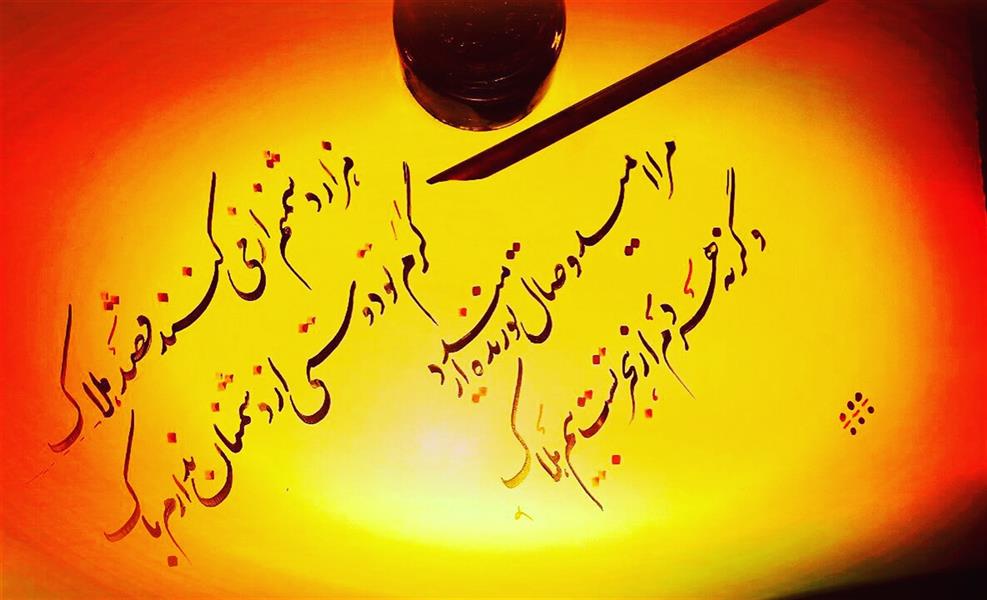 هزار دشمنم ار می کنند قصد هلاک
گرم تو دوستی از دشمنان ندارم باک
مرا امید وصال تو زنده میدارد
وگرنه هر دمم از هجر تست بیم هلاک